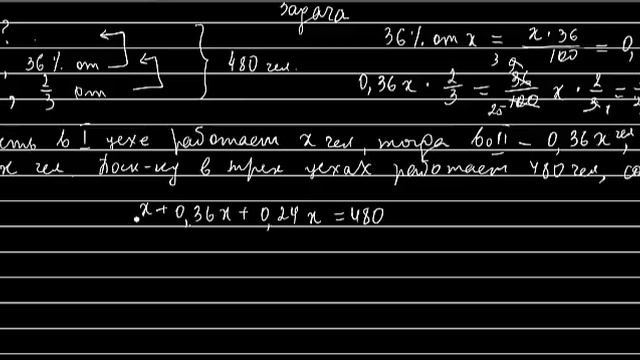 задача
?
36% от x = x · 36 / 100 = 0,
, 36% от } 480 чел.
, 2/3 от
0,36x · 2/3 = 36/100 x · 2/3 =
сть в I цехе работает x чел, тогда во II – 0,36x чел,
x чел. Поск-ку в трех цехах работает 480 чел, со
x + 0,36x + 0,24x = 480